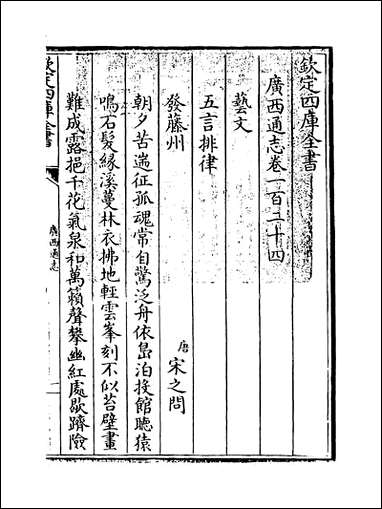 欽定四庫全書
廣西通志卷一百二十四
藝文
五言排律
發藤州
唐 宋之問
朝夕苦遄征孤魂常自驚泛舟依島泊投館聽猿
鳴石髮緣溪蔓林衣拂地輕雲峯刻不似苔壁畫
難成露挹千花氣泉和萬籟聲攀幽紅處歇躋險
欽定四庫全書
廣西通志